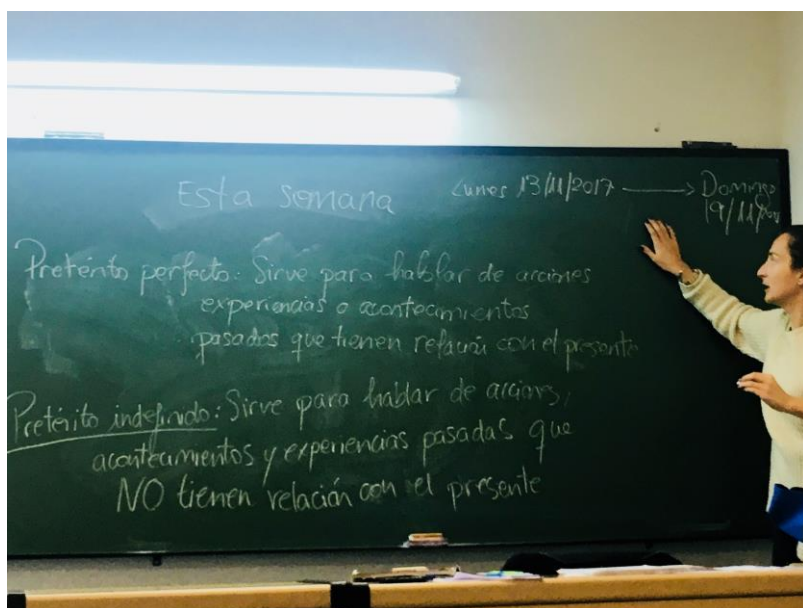 Esta semana Lunes 13/11/2017 → Domingo
19/11/
Pretérito perfecto: Sirve para hablar de acciones
experiencias o acontecimientos
pasados que tienen relación con el presente
Pretérito indefinido: Sirve para hablar de acciones,
acontecimientos y experiencias pasadas que
NO tienen relación con el presente